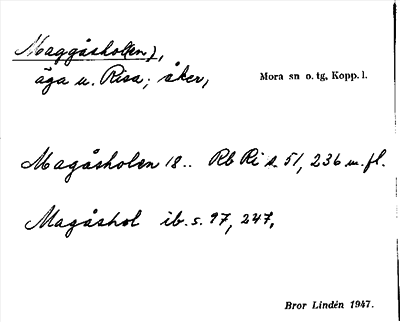 Maggåshol(en),
äga u. Risa; åker,
Mora sn o. tg, Kopp. l.
Magåsholen 18.. Rb Ri s. 51, 236 m. fl.
Magåshol ib. s. 97, 247,
Bror Lindén 1947.